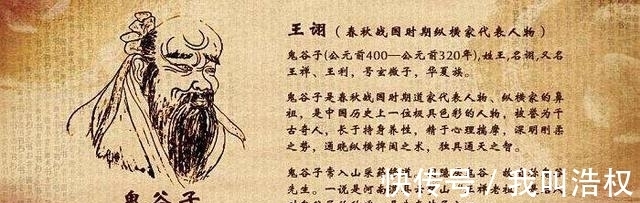 王诩(春秋战国时期纵横家代表人物)
鬼谷子(公元前400—公元前320年),姓王,名诩,又名
王禅、王利,号玄微子,华夏族。
鬼谷子是春秋战国时期道家代表人物、纵横家的鼻
祖,是中国历史上一位极具色彩的人物,被誉为千
古奇人,长于持身养性,精于心理揣摩,深明刚柔
之势,通晓纵横捭阖之术,独具通天之智。
鬼谷子常入山采药
先生。一说是河南
鬼谷子
快传号/我叫浩权